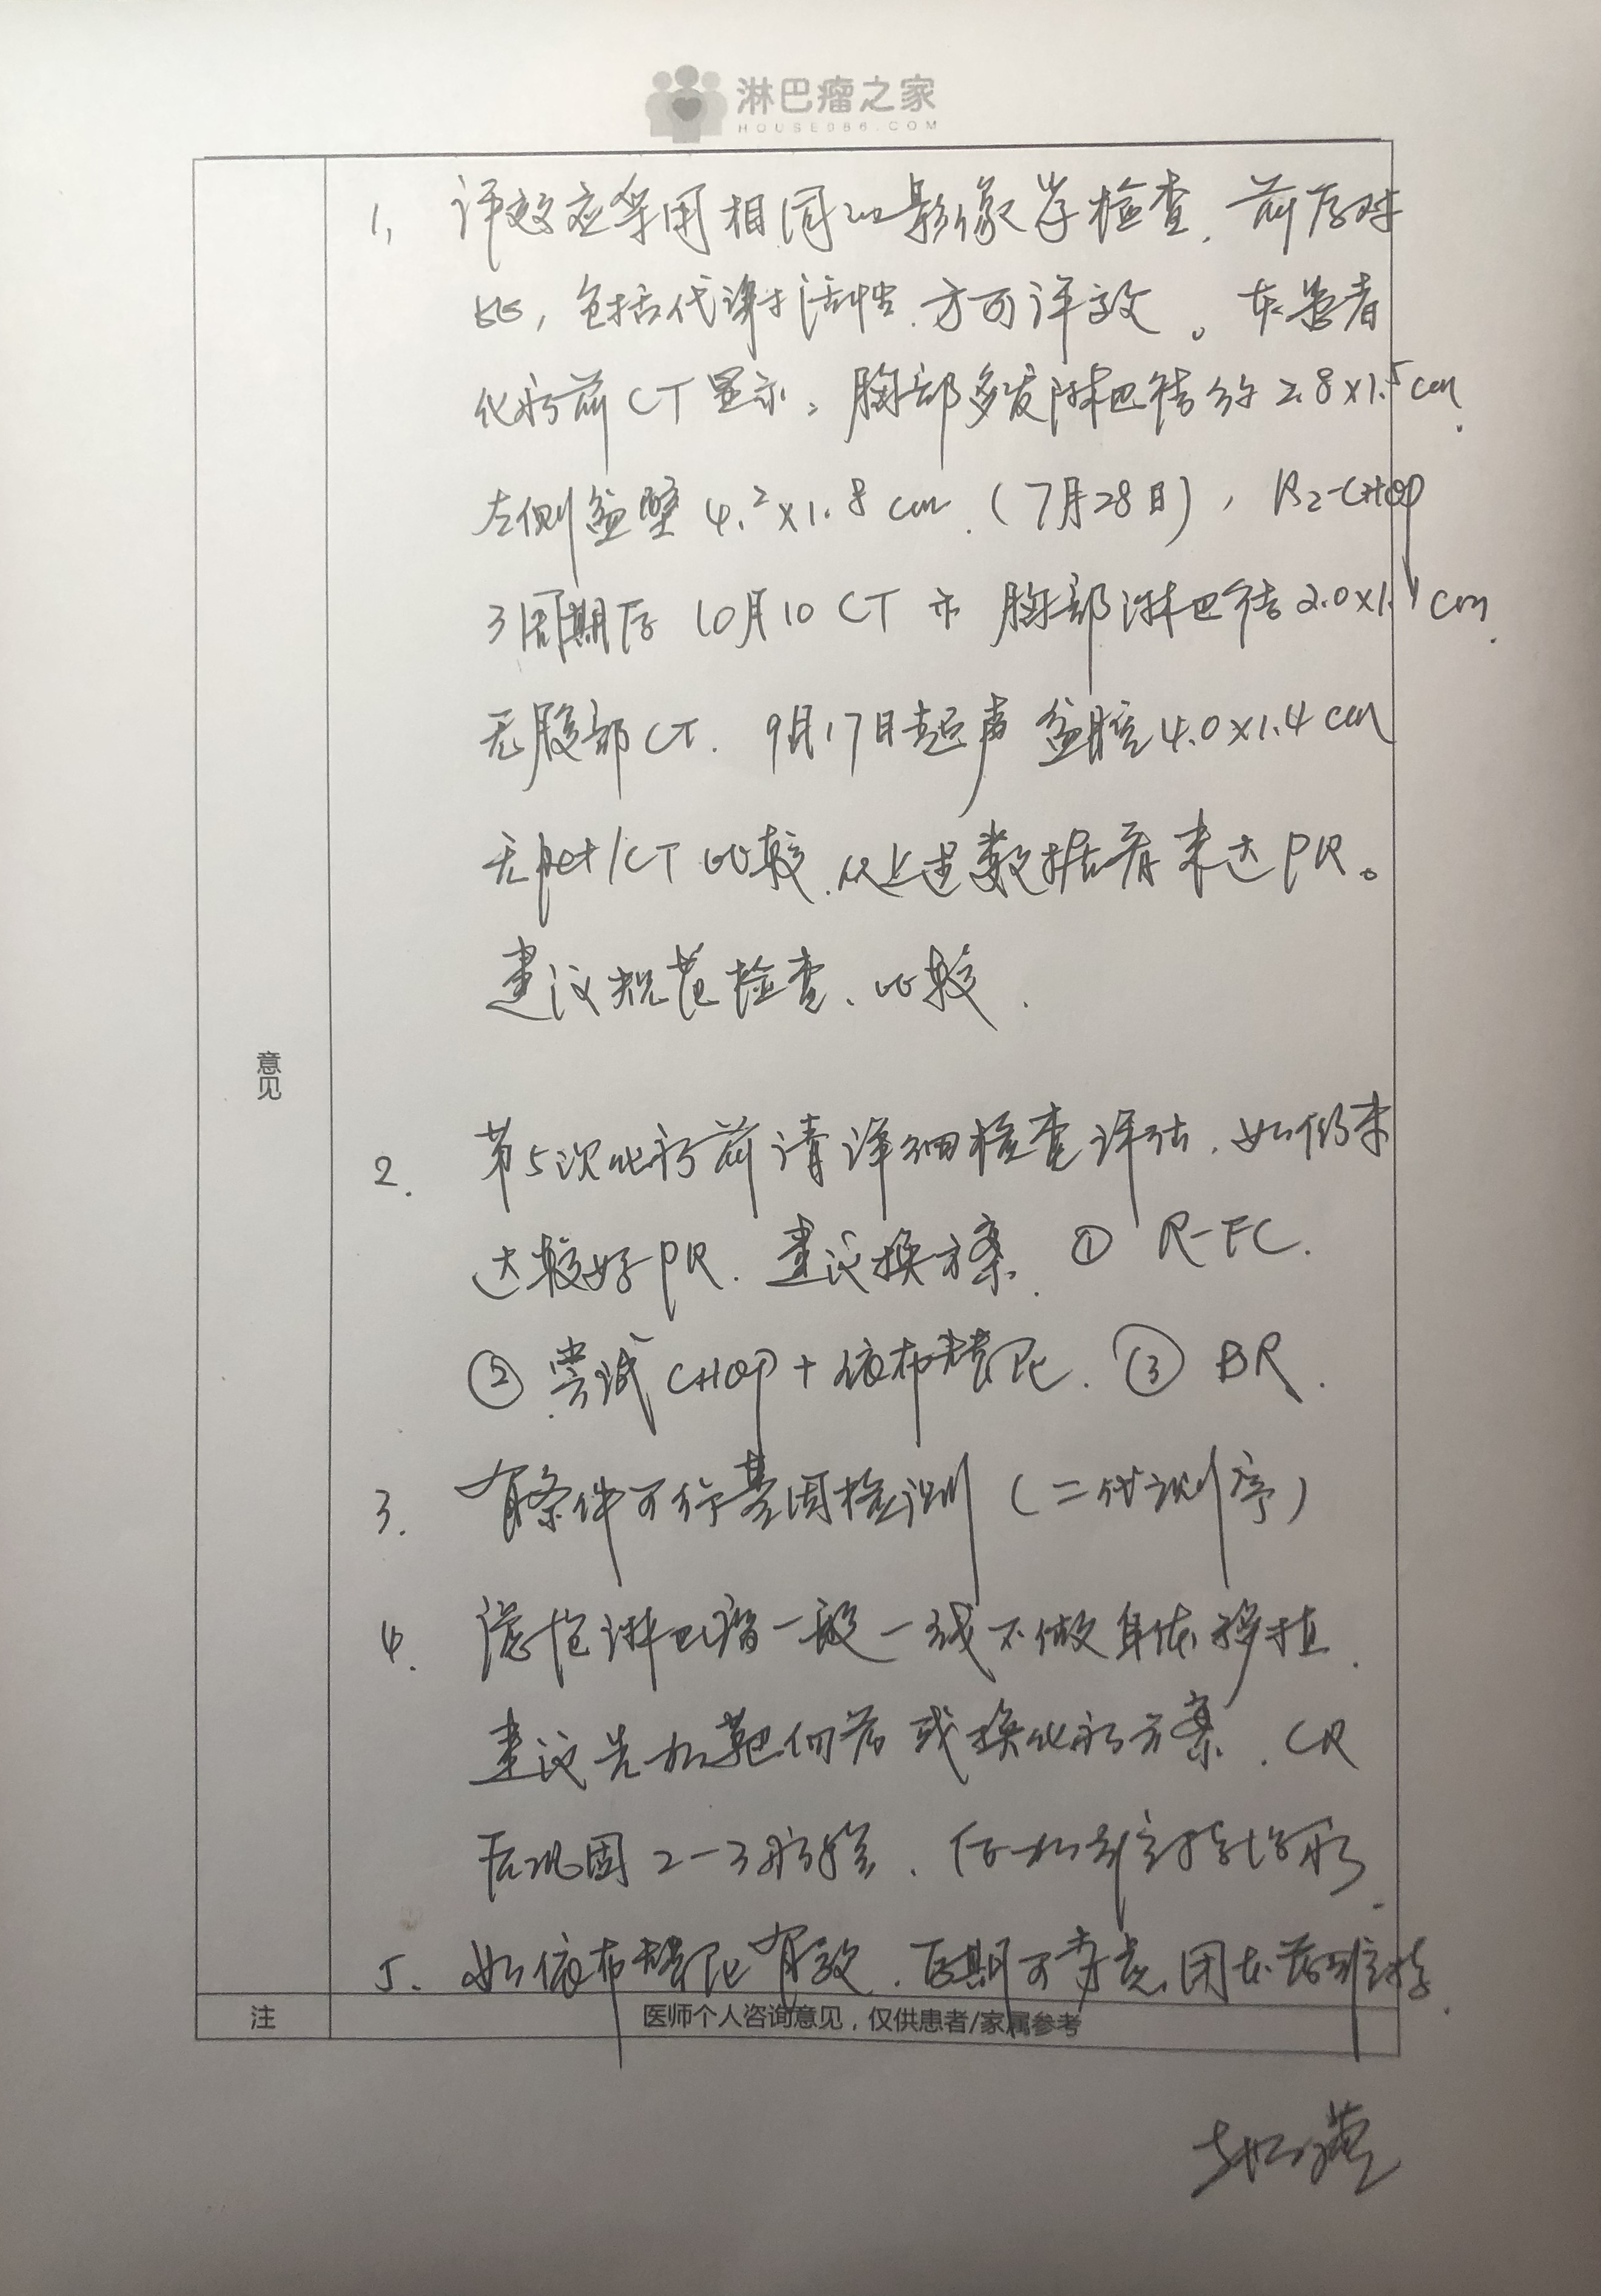 淋巴瘤之家
HOUSE086.COM
1. 评效应采用相同的影像学检查、前后对
比,包括代谢活性.方可评效。本患者
化疗前CT显示:胸部多发淋巴结约2.8×1.5cm.
左侧盆壁4.2×1.8cm.(7月28日),R2-CHOP
3周期后 10月10 CT示 胸部淋巴结2.0×1.1cm.
无腹部CT. 9月17日超声 盆腔4.0×1.4cm
无pet/CT比较.从上述数据看未达PR。
建议规范检查、比较.
意见
2. 第5次化疗前请详细检查评估.如仍未
达较好PR.建议换方案. ① R-FC.
② 尝试CHOP+依布替尼. ③ BR.
3. 有条件可行基因检测(二代测序)
4. 滤泡淋巴瘤一般一线不做自体移植.
建议先加靶向药或换化疗方案.CR
后巩固2-3疗程.
5. 如依布替尼有效.后期可考虑用本药维持.
注
医师个人咨询意见,仅供患者/家属参考